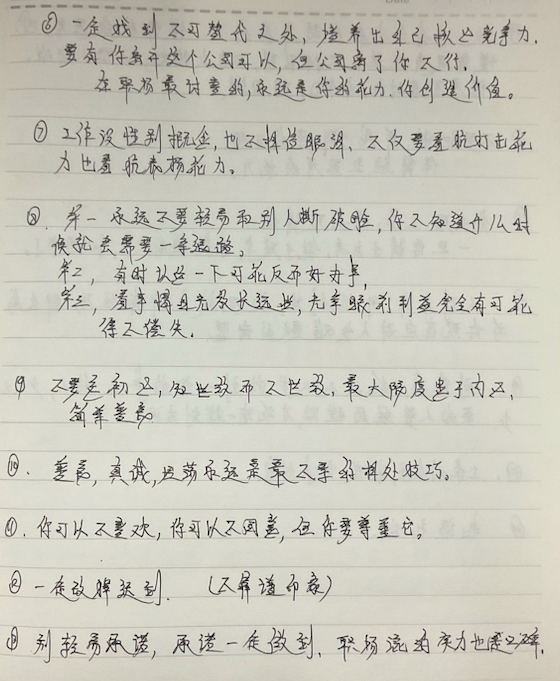 ⑥ 一定找到不可替代之处,培养出自己核心竞争力.
要有你离开这个公司可以,但公司离了你不行.
在职场最讨喜的,永远是你的能力.你创造价值。
⑦ 工作没性别概念,也不相信眼泪、不仅要看抗打击能
力也看抗表扬能力。
⑧. 第一永远不要轻易和别人撕破脸,你不知道什么时
候就会需要一条退路,
第二,有时认怂一下可能反而好办事,
第三,看事情目光放长远些,光拿眼前利益完全有可能
得不偿失.
⑨ 不要忘初心,知世故而不世故,最大限度忠于内心,
简单善良
⑩. 善良,真诚,坦荡永远是最不累的相处技巧。
⑪. 你可以不喜欢,你可以不同意,但你要尊重它。
⑫ 一定改掉迟到. (不靠谱印象)
⑬ 别轻易承诺,承诺一定做到.职场混的实力也是口碑.